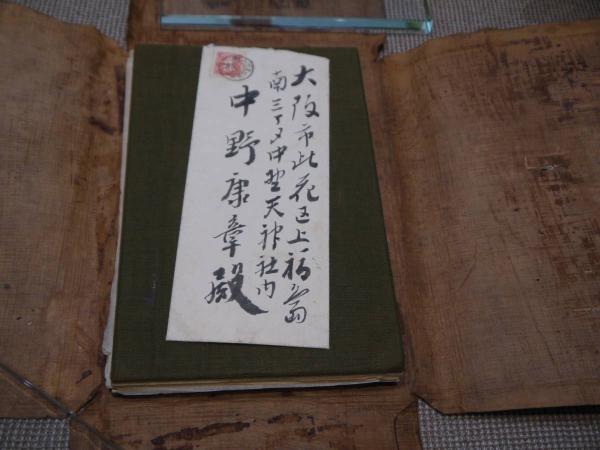 大阪市此花区上福島
南三丁目中天神社内
中野康章殿